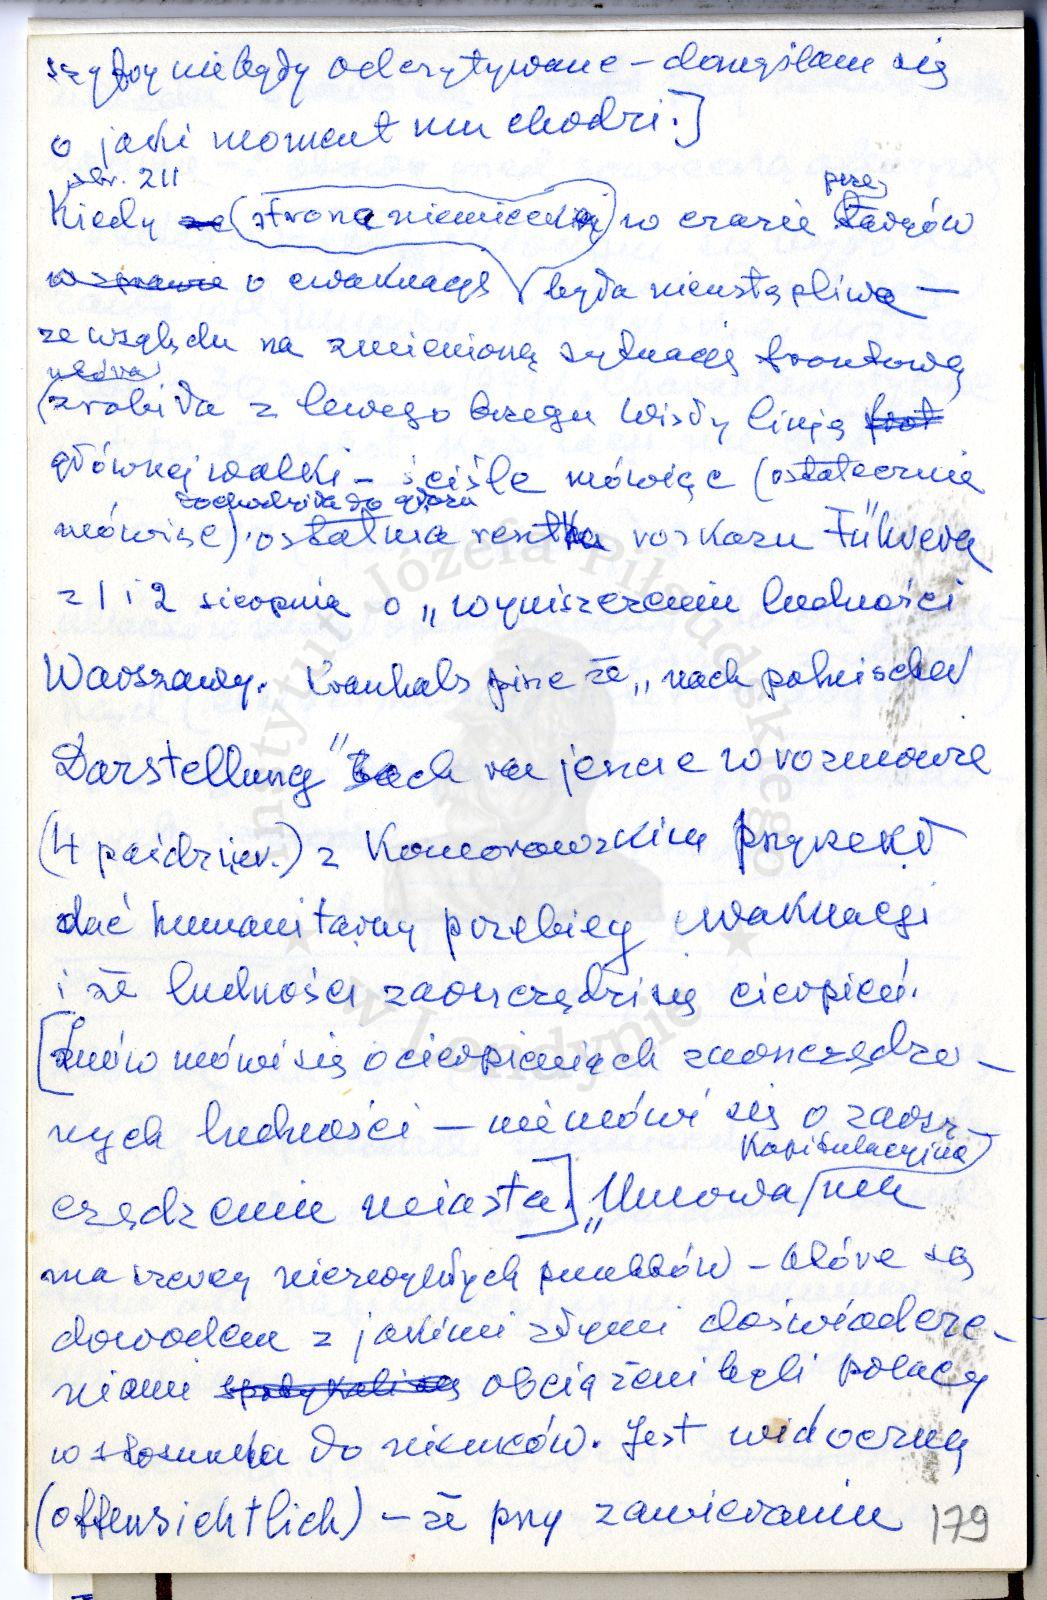 szyfry nie były odczytywane – domyślam się
o jaki moment mu chodzi.]
str. 211
Kiedy za (strona niemiecka) w czasie targów
w sprawie o ewakuację była nieustępliwa –
ze względu na zmienioną sytuację frontową
która
(zrobiła z lewego brzegu Wisły linię front
głównej walki – ściśle mówiąc (ostatecznie
dochodziła do głosu
mówiąc) ostatnia resztka rozkazu Führera
z 1 i 2 sierpnia o „wyniszczeniu ludności
Warszawy. Kranhals pisze że „nach polnischer
Darstellung" Bach na jeszcze w rozmowie
(4 paździer.) z Komorowskim przyrzekł
dać humanitarny przebieg ewakuacji
i że ludności zaoszczędzi się cierpień.
[Znów mówi się o cierpieniach zaoszczędzo–
nych ludności – nie mówi się o zaosz–
kapitulacyjna
czędzeniu miasta] „Umowa ma
ma szereg niezwykłych punktów – które są
dowodem z jakimi złymi doświadcze–
niami spotykali się obciążeni byli polacy
w stosunku do niemców. Jest widoczną
(offensichtlich) – że przy zawieraniu
179
Instytut Józefa Piłsudskiego
w Londynie